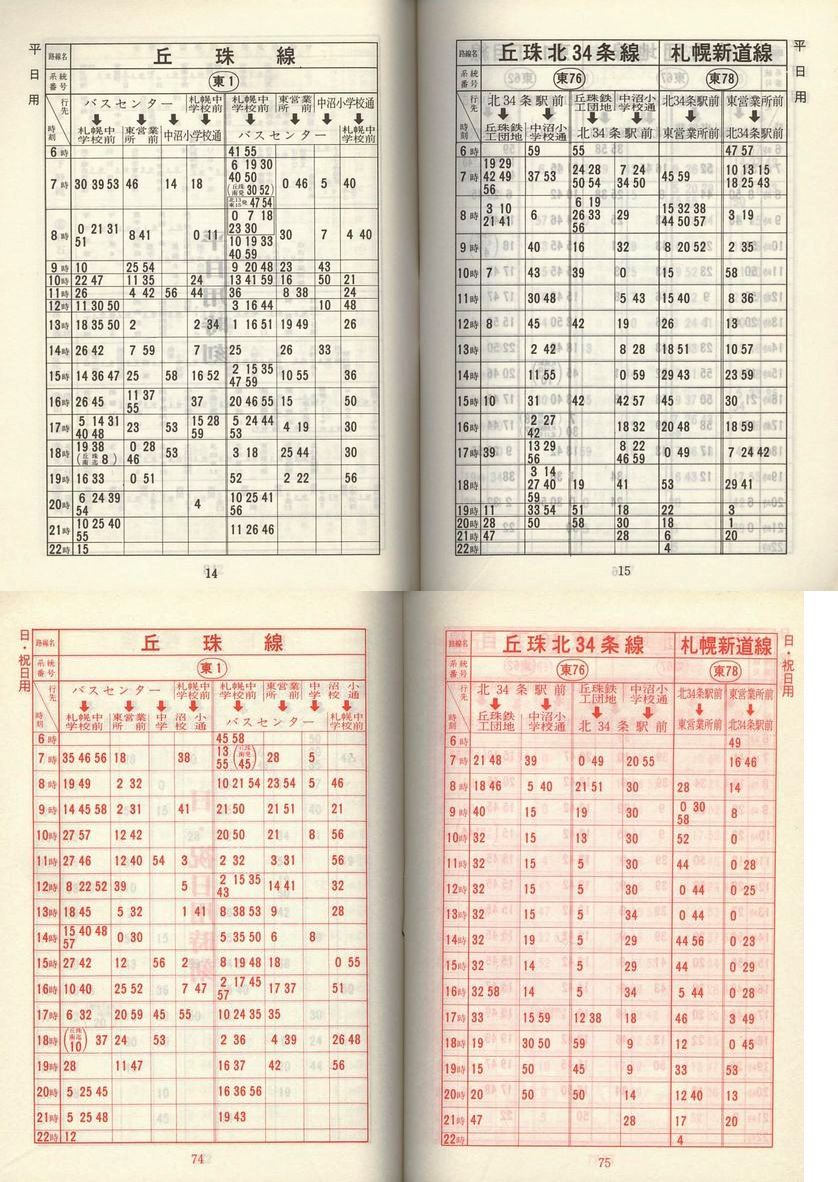 平日用
路線名 丘珠線
系統番号 東1
行先 時刻
バスセンター ↓ 札幌中学校前
東営業所前
中沼小学校通
札幌中学校前 ↓ 中沼小学校通
札幌中学校前 東営業所前 中沼小学校通
↓ バスセンター
札幌中学校前
6時 41 55
7時 30 39 53 46 14 18 6 19 30 40 50 (丘珠南発 30 52) 47 54 0 46 5 40
8時 0 21 31 51 8 41 0 11 0 7 18 23 30 10 19 33 40 59 30 7 4 40
9時 10 25 54 9 20 48 23 43
10時 22 47 11 35 24 13 41 59 16 50 21
11時 26 4 42 56 44 36 8 38 24
12時 11 30 50 3 16 44 10 48
13時 18 35 50 2 2 34 1 16 51 19 49 26
14時 26 42 7 59 7 25 26 33
15時 14 36 47 25 58 16 52 2 15 35 47 59 10 55 36
16時 26 45 11 37 55 37 20 46 55 15 50
17時 5 14 31 40 48 23 53 15 28 59 5 24 44 53 4 19 30
18時 19 38 (丘珠南迄 8) 0 28 46 53 3 18 25 44 30
19時 16 33 0 51 52 2 22 56
20時 6 24 39 54 4 10 25 41 56
21時 10 25 40 55 11 26 46
22時 15
14
平日用
路線名 丘珠北34条線 札幌新道線
系統番号 東76 東78
行先 時刻
北34条駅前 ↓ 丘珠鉄工団地 中沼小学校通
丘珠鉄工団地 中沼小学校通 ↓ 北34条駅前
北34条駅前 ↓ 東営業所前
東営業所前 ↓ 北34条駅前
6時 59 55 47 57
7時 19 29 42 49 56 37 53 24 28 50 54 7 24 34 50 45 59 10 13 15 18 25 43
8時 3 10 21 41 6 6 19 26 33 56 29 15 32 38 44 50 57 3 19
9時 40 16 32 8 20 52 2 35
10時 7 43 39 0 15 58
11時 30 48 5 43 15 40 8 36
12時 8 45 42 19 26 13
13時 2 42 8 28 18 51 10 57
14時 11 55 0 59 29 43 23 59
15時 10 31 42 42 57 45 30
16時 2 27 42 18 32 20 48 18 59
17時 39 13 29 56 8 22 46 59 0 49 7 24 42
18時 3 14 27 40 59 19 41 53 29 41
19時 11 33 54 51 18 22 3
20時 28 50 58 30 18 1
21時 47 28 6 20
22時 4
15
日・祝日用
路線名 丘珠線
系統番号 東1
行先 時刻
バスセンター ↓ 札幌中学校前
東営業所前
中沼小学校通
札幌中学校前
札幌中学校前 東営業所前 中沼小学校通
↓ バスセンター
札幌中学校前
6時 45 58
7時 35 46 56 18 38 13 55 (丘珠南発 45) 28 5
8時 19 49 2 32 10 21 54 23 54 5 46
9時 14 45 58 2 31 41 21 50 21 51 21
10時 27 57 12 42 20 50 21 8 56
11時 27 46 12 40 54 3 2 32 3 31 56
12時 8 22 52 39 5 2 15 35 43 14 41 32
13時 18 45 5 32 1 41 8 38 53 9 28
14時 15 40 48 57 0 30 5 35 50 6 8
15時 27 42 12 56 2 8 19 48 18 0 55
16時 10 40 25 52 7 47 2 17 45 57 17 37 51
17時 6 32 20 59 45 55 10 24 35 35
18時 (丘珠南迄 10) 37 24 53 2 36 4 39 26 48
19時 28 11 47 16 37 42 56
20時 5 25 45 16 36 56
21時 5 25 48 19 43
22時 12
74
日・祝日用
路線名 丘珠北34条線 札幌新道線
系統番号 東76 東78
行先 時刻
北34条駅前 ↓ 丘珠鉄工団地 中沼小学校通
丘珠鉄工団地 中沼小学校通 ↓ 北34条駅前
北34条駅前 ↓ 東営業所前
東営業所前 ↓ 北34条駅前
6時 49
7時 21 48 39 0 49 20 55 16 46
8時 18 46 5 40 21 51 30 28 14
9時 40 15 19 30 0 30 58 8
10時 32 15 13 30 52 0
11時 32 15 5 30 44 0 28
12時 32 15 5 30 0 44 0 25
13時 32 15 5 34 0 44 0
14時 32 19 5 29 44 56 0 23
15時 32 14 5 29 44 0 29
16時 32 58 14 5 34 5 44 0 28
17時 33 15 59 12 38 18 46 3 49
18時 19 30 50 59 9 12 0 45
19時 15 50 45 9 33 53
20時 20 50 50 14 12 40 13
21時 47 28 17 20
22時 4
75